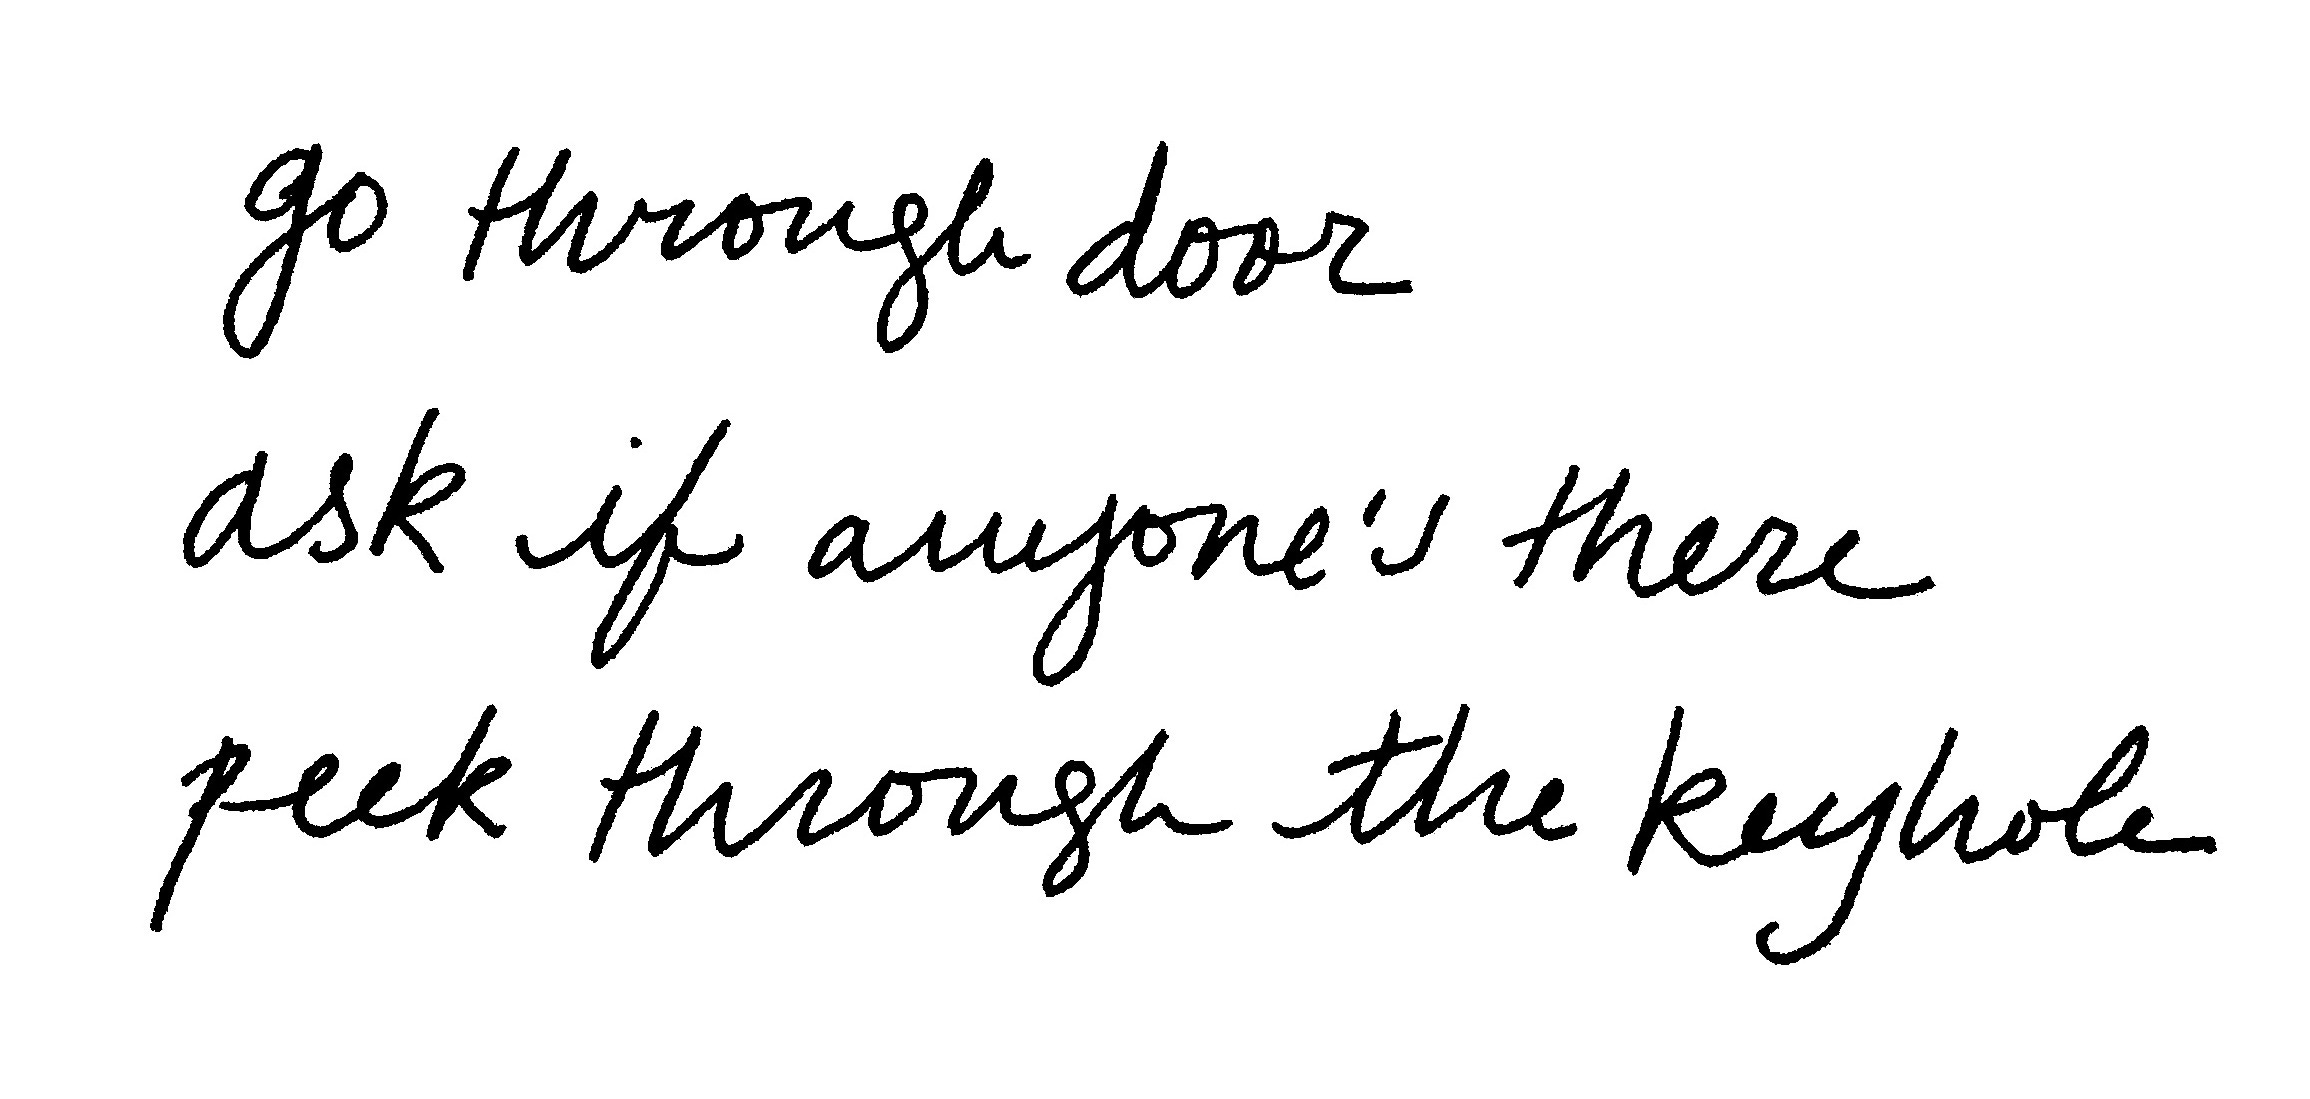 go through door
ask if anyone's there
peek through the keyhole